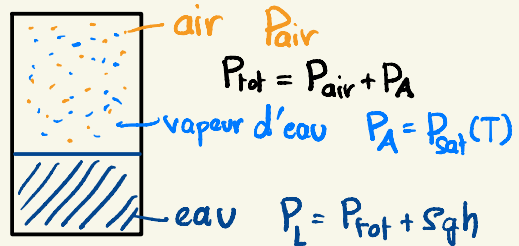 air Pair
Ptot = Pair + PA
vapeur d'eau PA = Psat(T)
eau PL = Ptot + ρgh